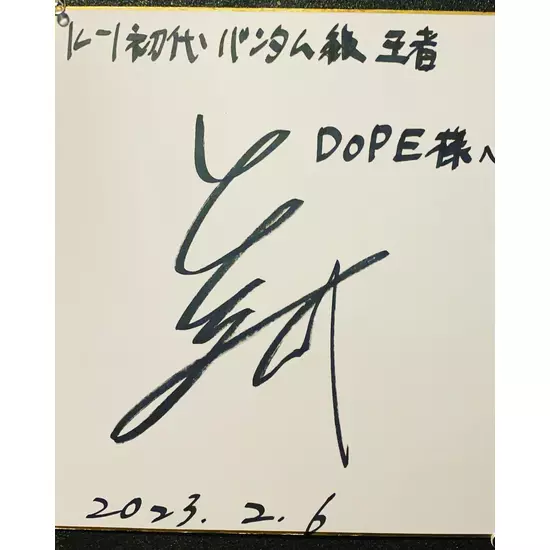 初代バンタム級 王者
DOPE様へ
2023.2.6